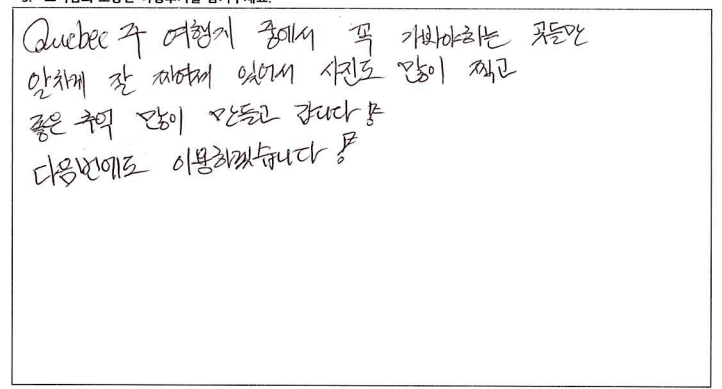 Quebec 주 여행지 중에서 꼭 가봐야하는 곳들만
알차게 잘 짜여져 있어서 사진도 많이 찍고
좋은 추억 많이 만들고 갑니다
다음번에도 이용하겠습니다